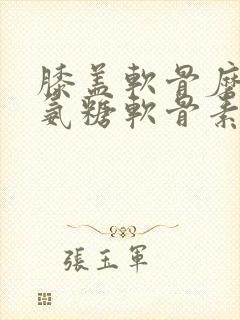 膝盖軟骨磨
氨糖軟骨素
張玉軍